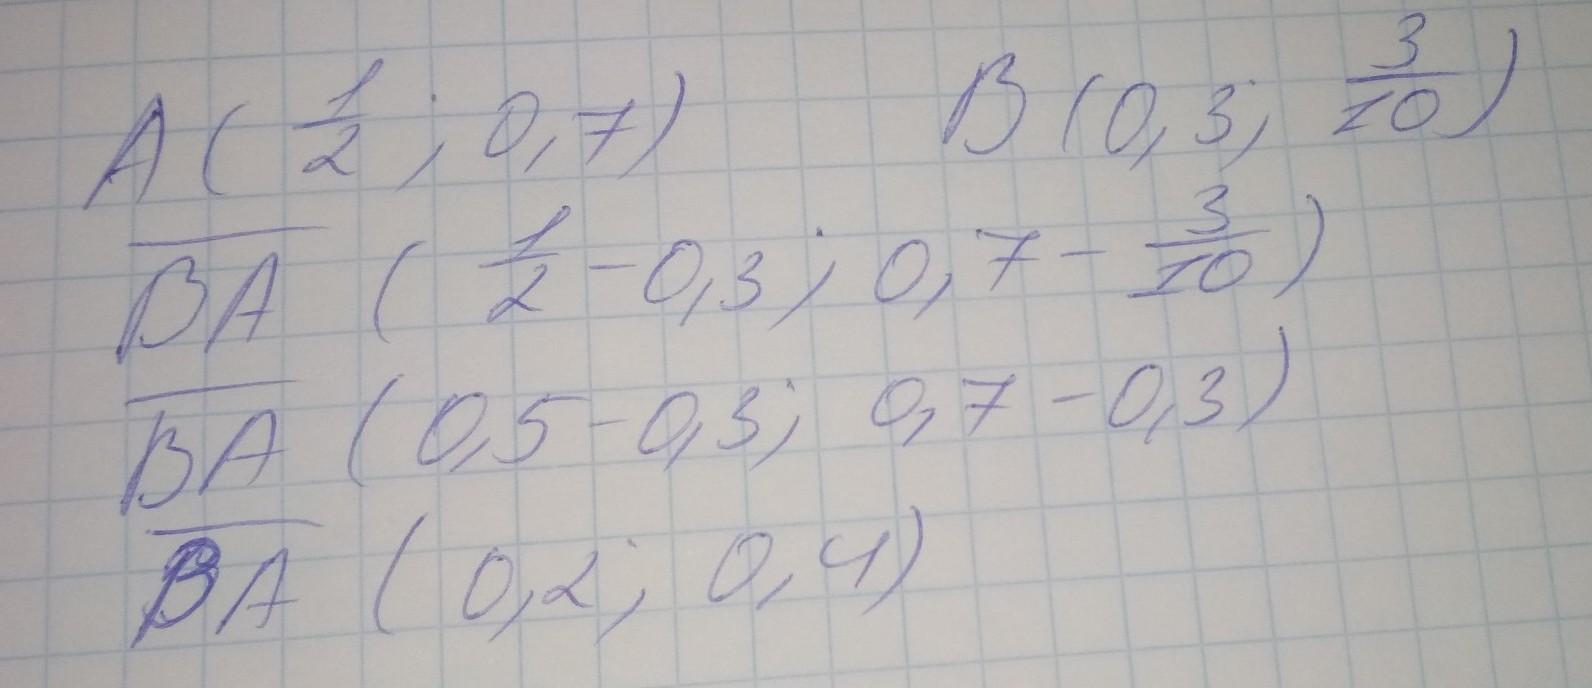 A ( 1/2 ; 0,7)    B (0,3; 3/10 )
BA ( 1/2 - 0,3 ; 0,7 - 3/10 )
BA (0,5 - 0,3; 0,7 - 0,3)
BA (0,2; 0,4)